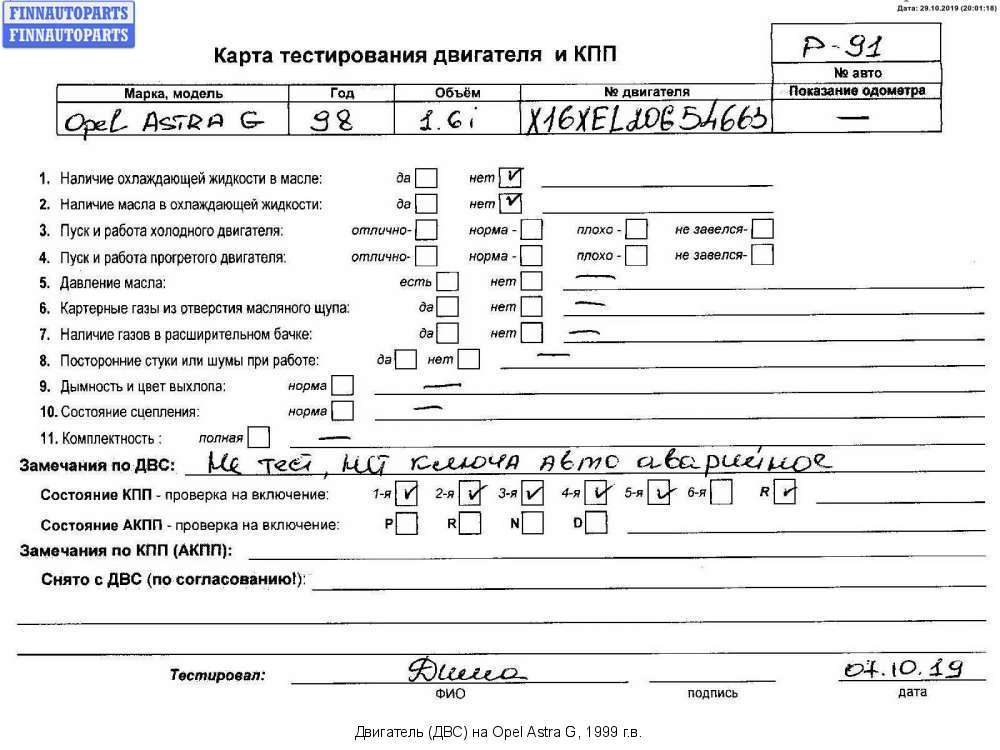 FINNAUTOPARTS
FINNAUTOPARTS
Дата: 29.10.2019 (20:01:18)
Карта тестирования двигателя и КПП
P-91
№ авто
Марка, модель Год Объём № двигателя Показание одометра
Opel ASTRA G 98 1.6i X16XEL20G54663 —
1. Наличие охлаждающей жидкости в масле: да нет ✓
2. Наличие масла в охлаждающей жидкости: да нет ✓
3. Пуск и работа холодного двигателя: отлично- норма - плохо - не завелся-
4. Пуск и работа прогретого двигателя: отлично- норма - плохо - не завелся-
5. Давление масла: есть нет —
6. Картерные газы из отверстия масляного щупа: да нет —
7. Наличие газов в расширительном бачке: да нет —
8. Посторонние стуки или шумы при работе: да нет —
9. Дымность и цвет выхлопа: норма —
10. Состояние сцепления: норма —
11. Комплектность : полная —
Замечания по ДВС: Не тест, нет ключа авто аварийное
Состояние КПП - проверка на включение: 1-я ✓ 2-я ✓ 3-я ✓ 4-я ✓ 5-я ✓ 6-я R ✓
Состояние АКПП - проверка на включение: P R N D
Замечания по КПП (АКПП):
Снято с ДВС (по согласованию!):
Тестировал: Дима 07.10.19
ФИО подпись дата
Двигатель (ДВС) на Opel Astra G, 1999 г.в.